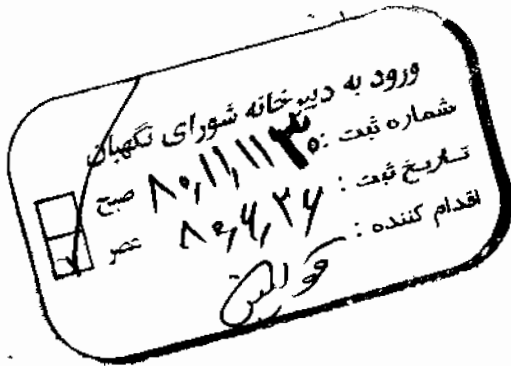 ورود به دبیرخانه شورای نگهبان
شماره ثبت : ۸۰،۱۱،۱۱۳۰ صبح
تاریخ ثبت : ۸۰،۷،۲۷ عصر
اقدام کننده : قوانین